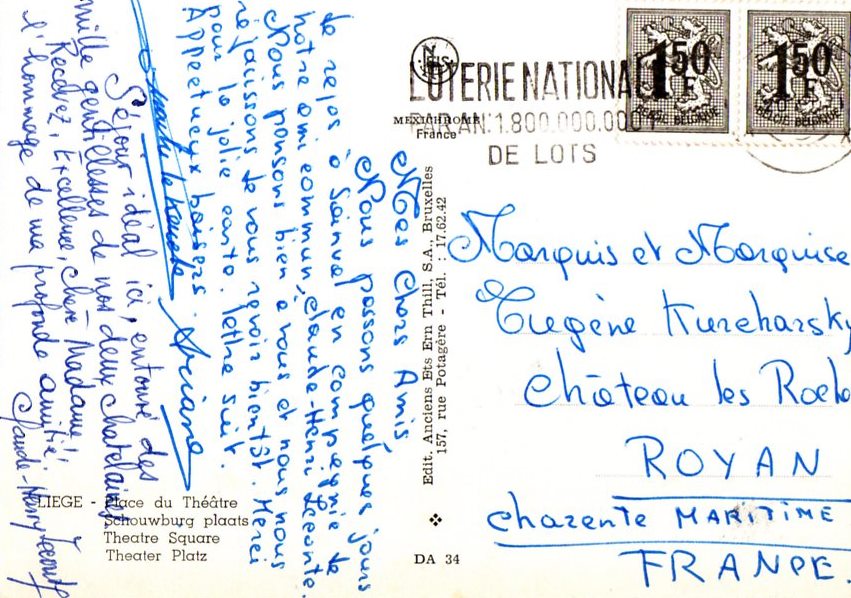 Mes Chers Amis
Nous passons quelques jours
de repos à Sainval en compagnie de
notre ami commun, Claude-Henri Lecomte.
Nous pensons bien à vous et nous nous
réjouissons de vous revoir bientôt. Merci
pour la jolie carte. lettre suit.
Affectueux baisers. Ariane
Séjour idéal ici, entouré des
mille gentillesses de nos deux chatelains
Recevez, Excellence, chère Madame,
l'hommage de ma profonde amitié.
Claude-Henry Lecomte
LIEGE - Place du Théâtre
Schouwburg plaats
Theatre Square
Theater Platz
MEXICHROME
France
Edit. Anciens Ets Ern Thill, S.A., Bruxelles
157, rue Potagère - Tél. : 17.62.42
DA 34
LOTERIE NATIONALE
PAR AN: 1.800.000.000 F
DE LOTS
1F50
BELGIE BELGIQUE
1F50
BELGIE BELGIQUE
Marquis et Marquise
Eugène Kucharsky
Château les Roch
ROYAN
Charente MARITIME
FRANCE.